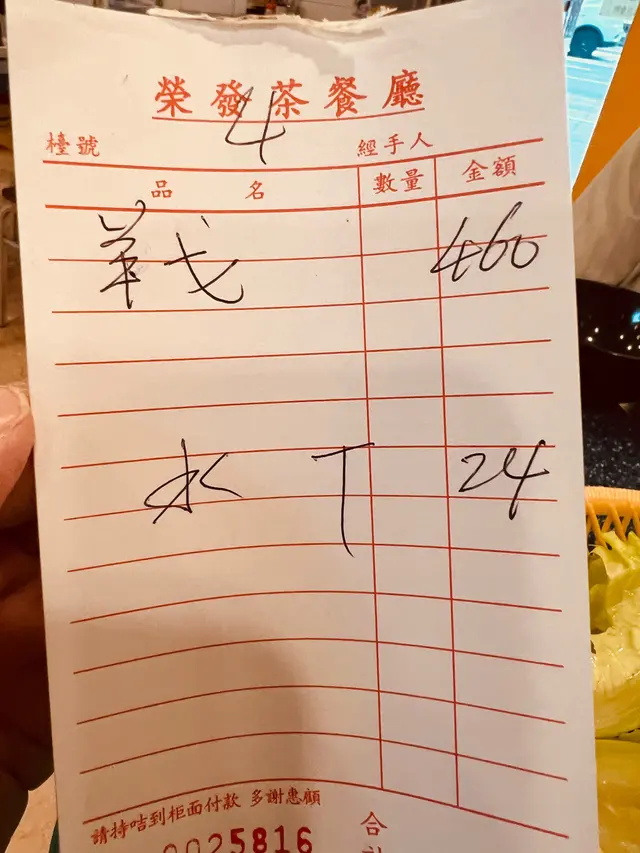 榮發茶餐廳
4
檯號 經手人
品名 數量 金額
羊弋 460
水 T 24
請持咭到柜面付款 多謝惠顧
0025816
合